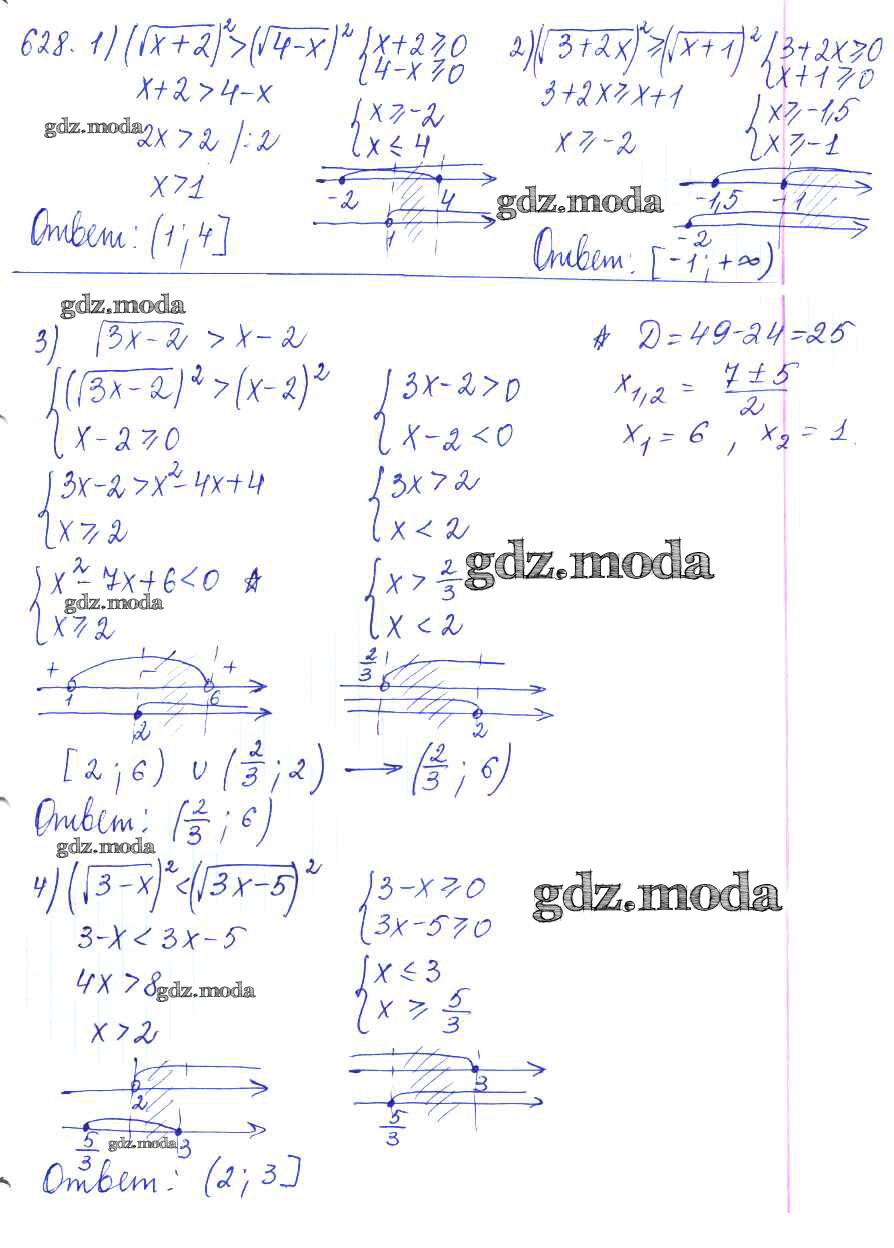 628. 1) (√(x+2))² > (√(4-x))² { x+2 ≥ 0
4-x ≥ 0
x+2 > 4-x
{ x ≥ -2
x ≤ 4
gdz.moda
2x > 2 |:2
x > 1
-2 4
1
Ответ: (1; 4]
2) (√(3+2x))² ≥ (√(x+1))² { 3+2x ≥ 0
x+1 ≥ 0
3+2x ≥ x+1
{ x ≥ -1,5
x ≥ -1
x ≥ -2
gdz.moda
-1,5 -1
-2
Ответ: [-1; +∞)
gdz.moda
3) √(3x-2) > x-2
{ (√(3x-2))² > (x-2)²
x-2 ≥ 0
{ 3x-2 > x²-4x+4
x ≥ 2
{ x²-7x+6 < 0 ☆
gdz.moda
x ≥ 2
+ - +
1 6
2
{ 3x-2 > 0
x-2 < 0
{ 3x > 2
x < 2
{ x > 2/3
x < 2
gdz.moda
2/3
2
☆ D = 49-24 = 25
x₁,₂ = (7±5)/2
x₁ = 6, x₂ = 1.
[2; 6) ∪ (2/3; 2) → (2/3; 6)
Ответ: (2/3; 6)
gdz.moda
4) (√(3-x))² < (√(3x-5))²
{ 3-x ≥ 0
3x-5 ≥ 0
gdz.moda
3-x < 3x-5
4x > 8
gdz.moda
x > 2
{ x ≤ 3
x ≥ 5/3
2
5/3 3
gdz.moda
3
5/3
Ответ: (2; 3]